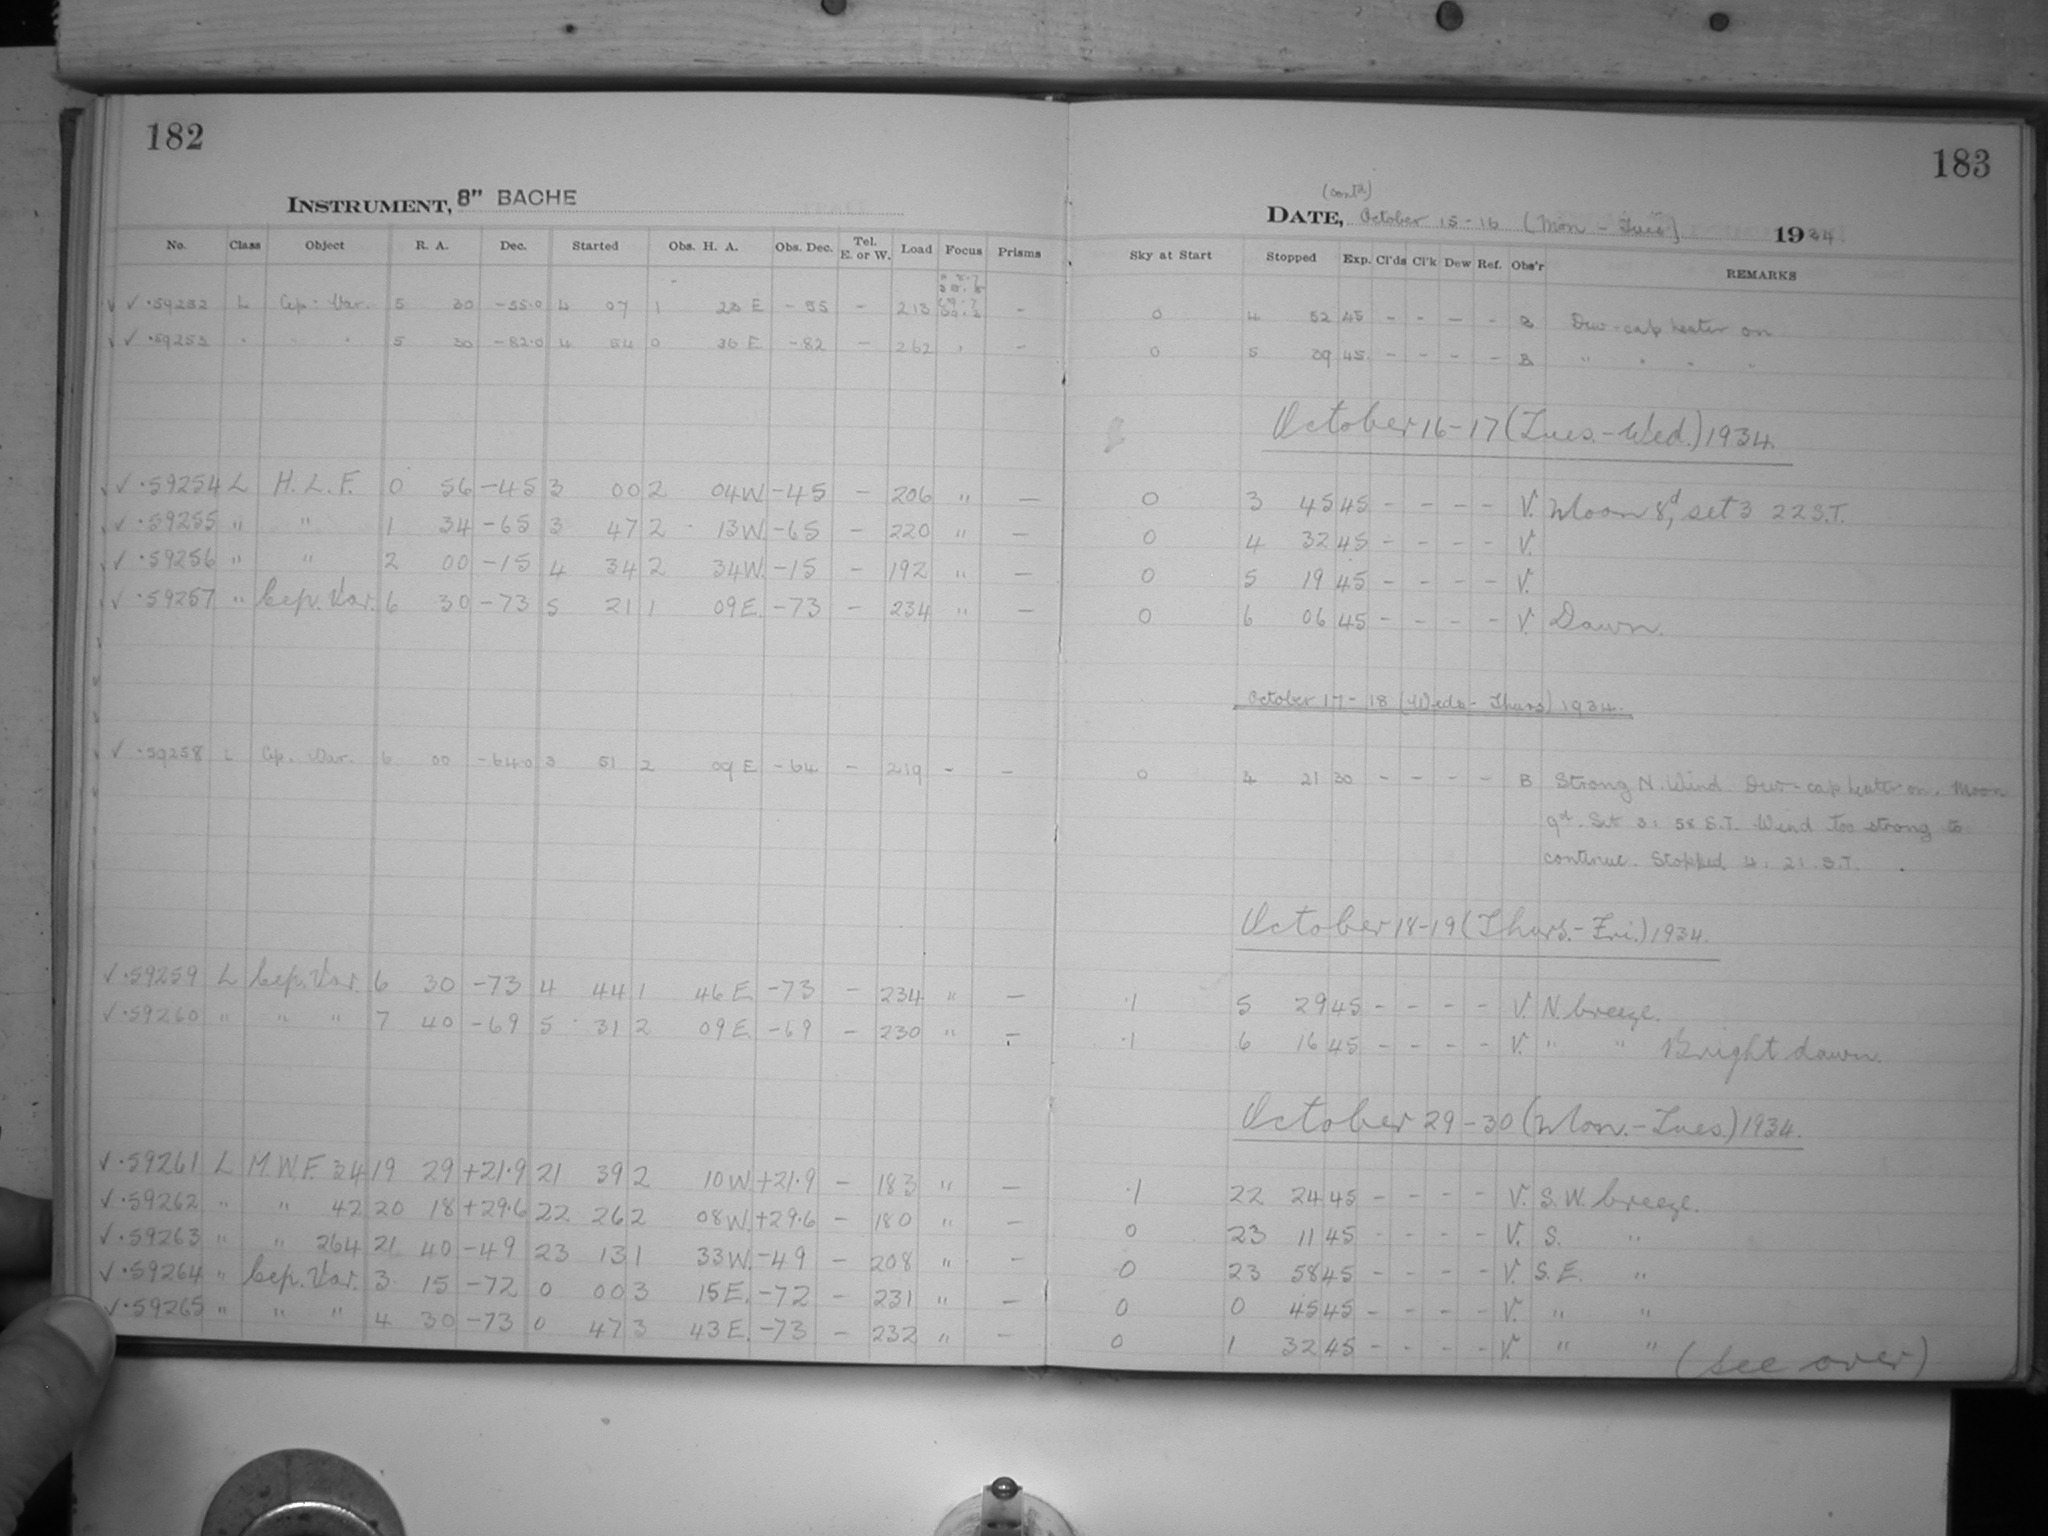 182
INSTRUMENT, 8" BACHE
No. Class Object R. A. Dec. Started Obs. H. A. Obs. Dec. Tel. E. or W. Load Focus Prisms
✓ .59252 L Cep. Var. 5 30 -55.0 4 07 1 23 E -55 - 213 -
✓ .59253 " " " 5 30 -82.0 4 54 0 36 E -82 - 262 " -
✓ .59254 L H. L. F. 0 56 -45 3 00 2 04 W. -45 - 206 " -
✓ .59255 " " 1 34 -65 3 47 2 13 W. -65 - 220 " -
✓ .59256 " " 2 00 -15 4 34 2 34 W. -15 - 192 " -
✓ .59257 " Cep. Var. 6 30 -73 5 21 1 09 E. -73 - 234 " -
✓ .59258 L Cep. Var. 6 00 -64.0 3 51 2 09 E -64 - 219 - -
✓ .59259 L Cep. Var. 6 30 -73 4 44 1 46 E. -73 - 234 " -
✓ .59260 " " " 7 40 -69 5 31 2 09 E. -69 - 230 " -
✓ .59261 L M. W. F. 34 19 29 +21.9 21 39 2 10 W. +21.9 - 183 " -
✓ .59262 " " 42 20 18 +29.6 22 26 2 08 W. +29.6 - 180 " -
✓ .59263 " " 264 21 40 -49 23 13 1 33 W. -49 - 208 " -
✓ .59264 " Cep. Var. 3 15 -72 0 00 3 15 E. -72 - 231 " -
✓ .59265 " " " 4 30 -73 0 47 3 43 E. -73 - 232 " -
183
(contd)
DATE, October 15-16 (Mon - Tues) 1934
Sky at Start Stopped Exp. Cl'ds Cl'k Dew Ref. Obs'r REMARKS
0 4 52 45 - - - - B Dew-cap heater on
0 5 39 45 - - - - B " " " "
October 16-17 (Tues.-Wed.) 1934.
0 3 45 45 - - - - V. Moon 8d, set 3 22 S.T.
0 4 32 45 - - - - V.
0 5 19 45 - - - - V.
0 6 06 45 - - - - V. Dawn.
October 17-18 (Weds - Thurs) 1934.
0 4 21 30 - - - - B Strong N. Wind. Dew-cap heater on. Moon
9d. Set 3: 58 S.T. Wind too strong to
continue. Stopped 4. 21. S.T.
October 18-19 (Thurs.-Fri.) 1934.
.1 5 29 45 - - - - V. N. breeze.
.1 6 16 45 - - - - V. " " Bright dawn.
October 29-30 (Mon.-Tues.) 1934.
.1 22 24 45 - - - - V. S. W. breeze.
0 23 11 45 - - - - V. S. "
0 23 58 45 - - - - V. S. E. "
0 0 45 45 - - - - V. " "
0 1 32 45 - - - - V. " "
(See over)